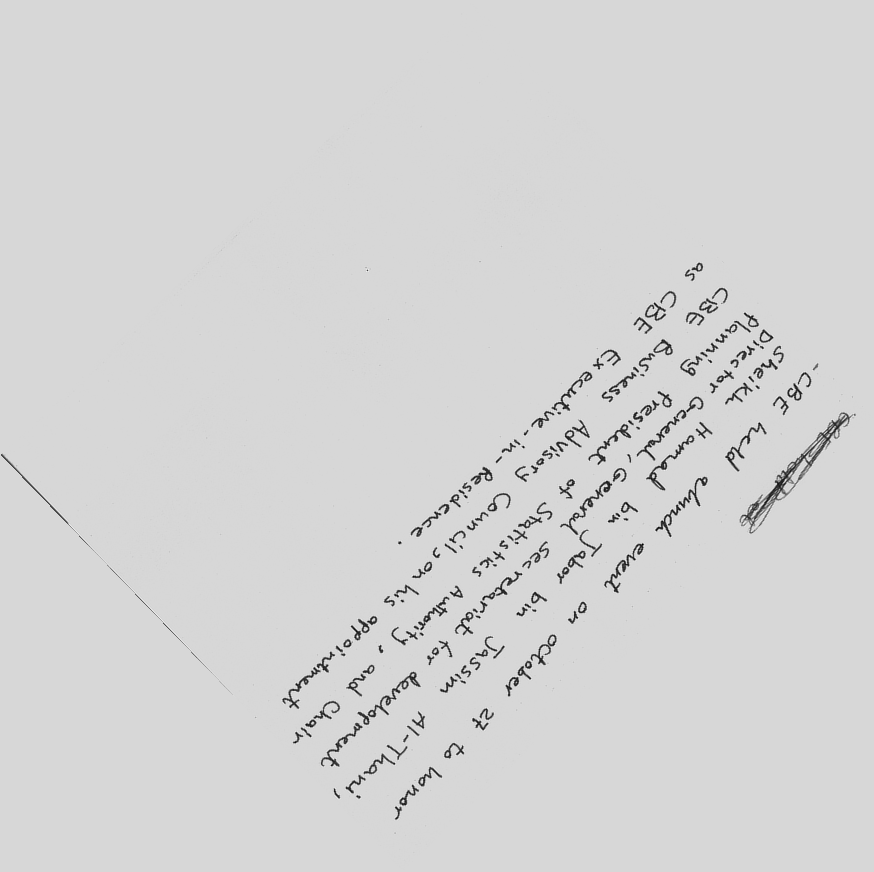 - CBE held alunch event on october 27 to honor
Sheikh Hamad bin Jabor bin Jassim Al-Thani,
Director General, General secretariat for development
Planning President of Statistics Authority, and Chair
CBE Business Advisory Council, on his appointment
as CBE Executive-in-Residence.